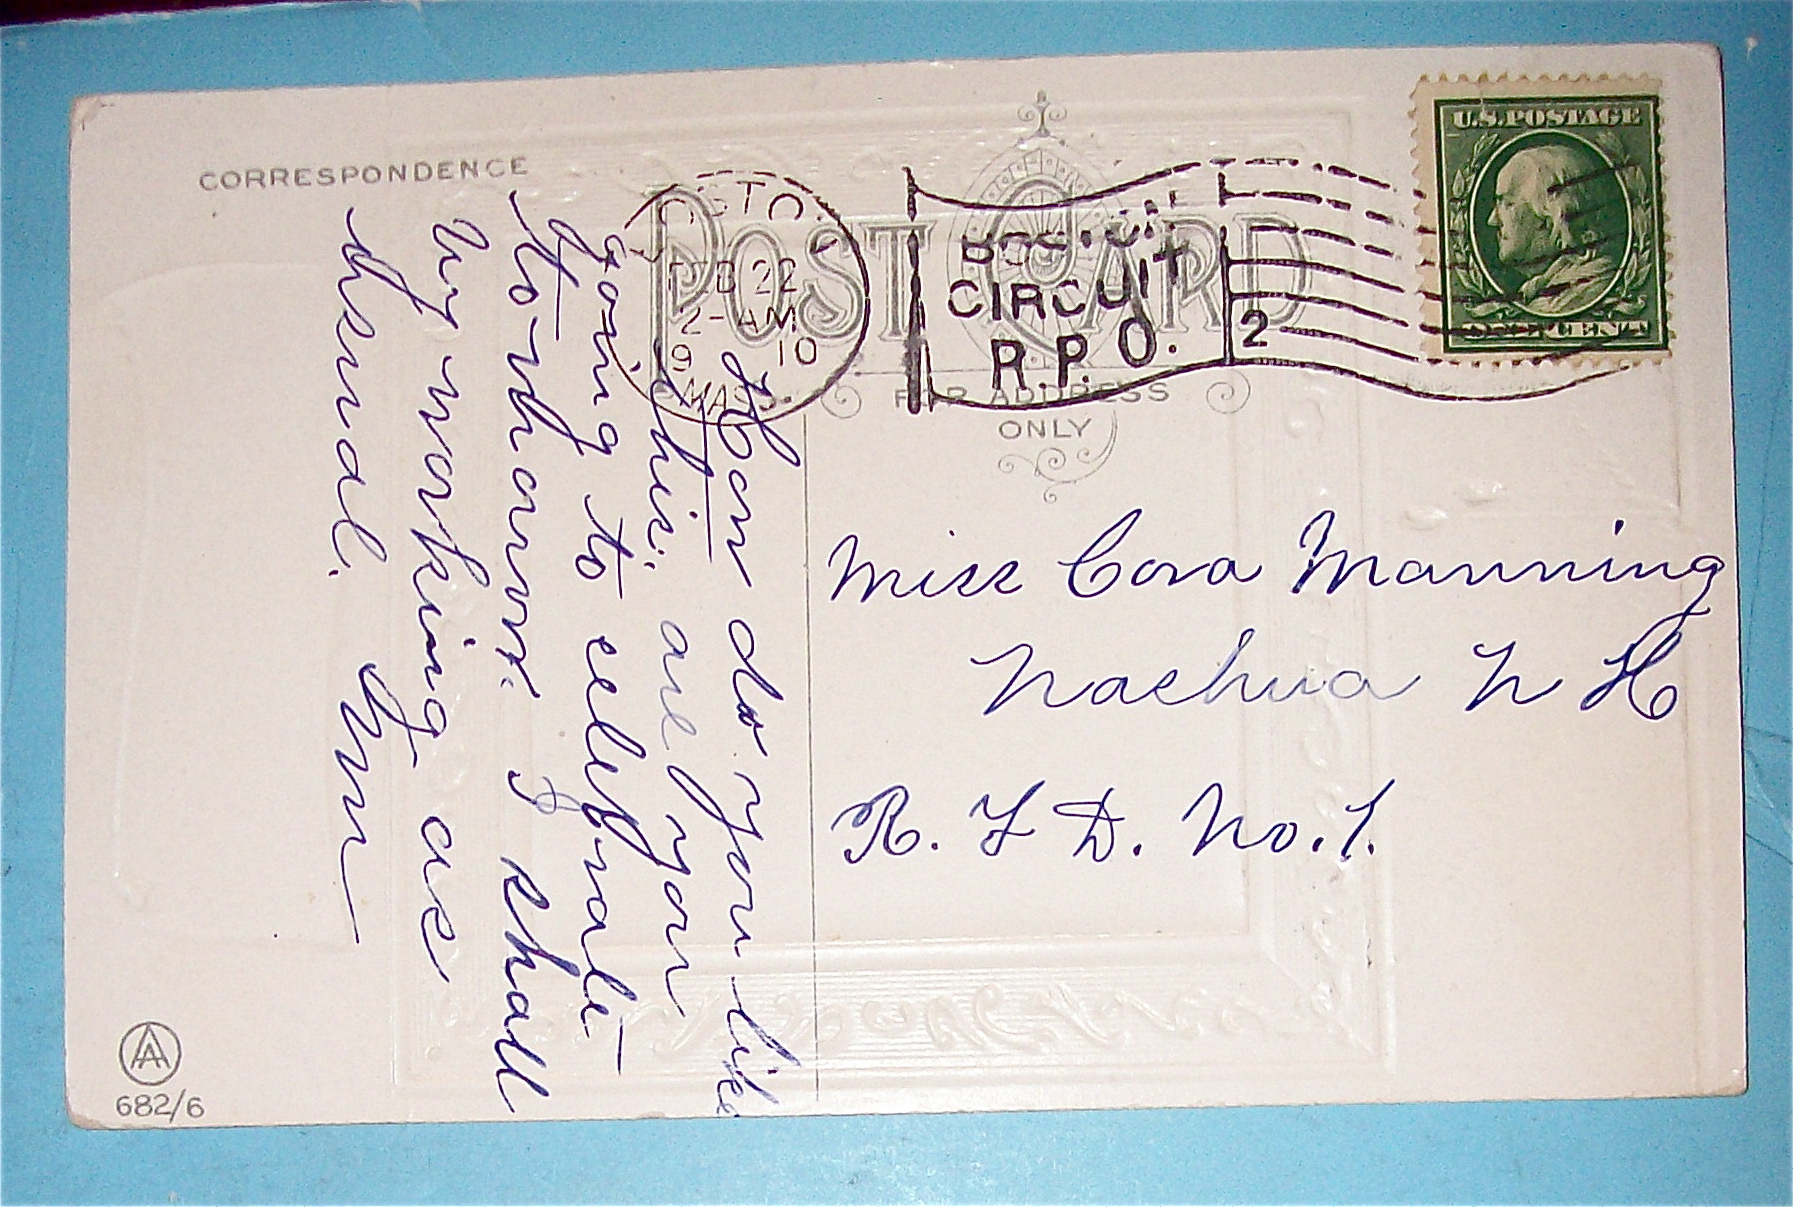 CORRESPONDENCE
POST CARD
FOR ADDRESS
ONLY
FEB 22
2-AM
19 10
MASS.
CIRCUIT
R.P.O.
2
U.S. POSTAGE
ONE CENT
How do you like
this. are you
going to celebrate
to-morrow. I shall
by working as
usual.
Miss Cora Manning
Nashua N H
R. F D. No. 1.
AA
682/6